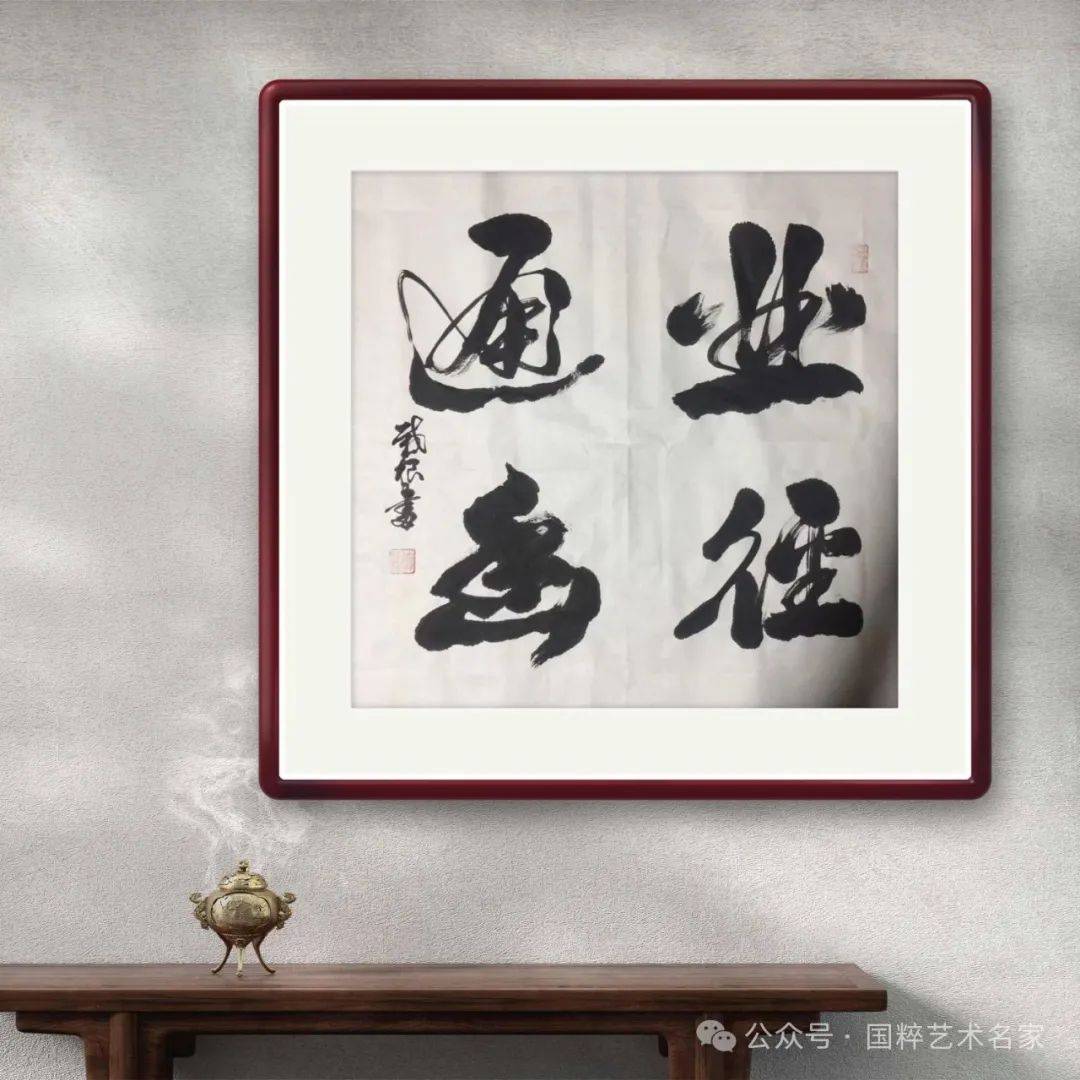 曲径
通幽
根書
公众号 · 国粹艺术名家